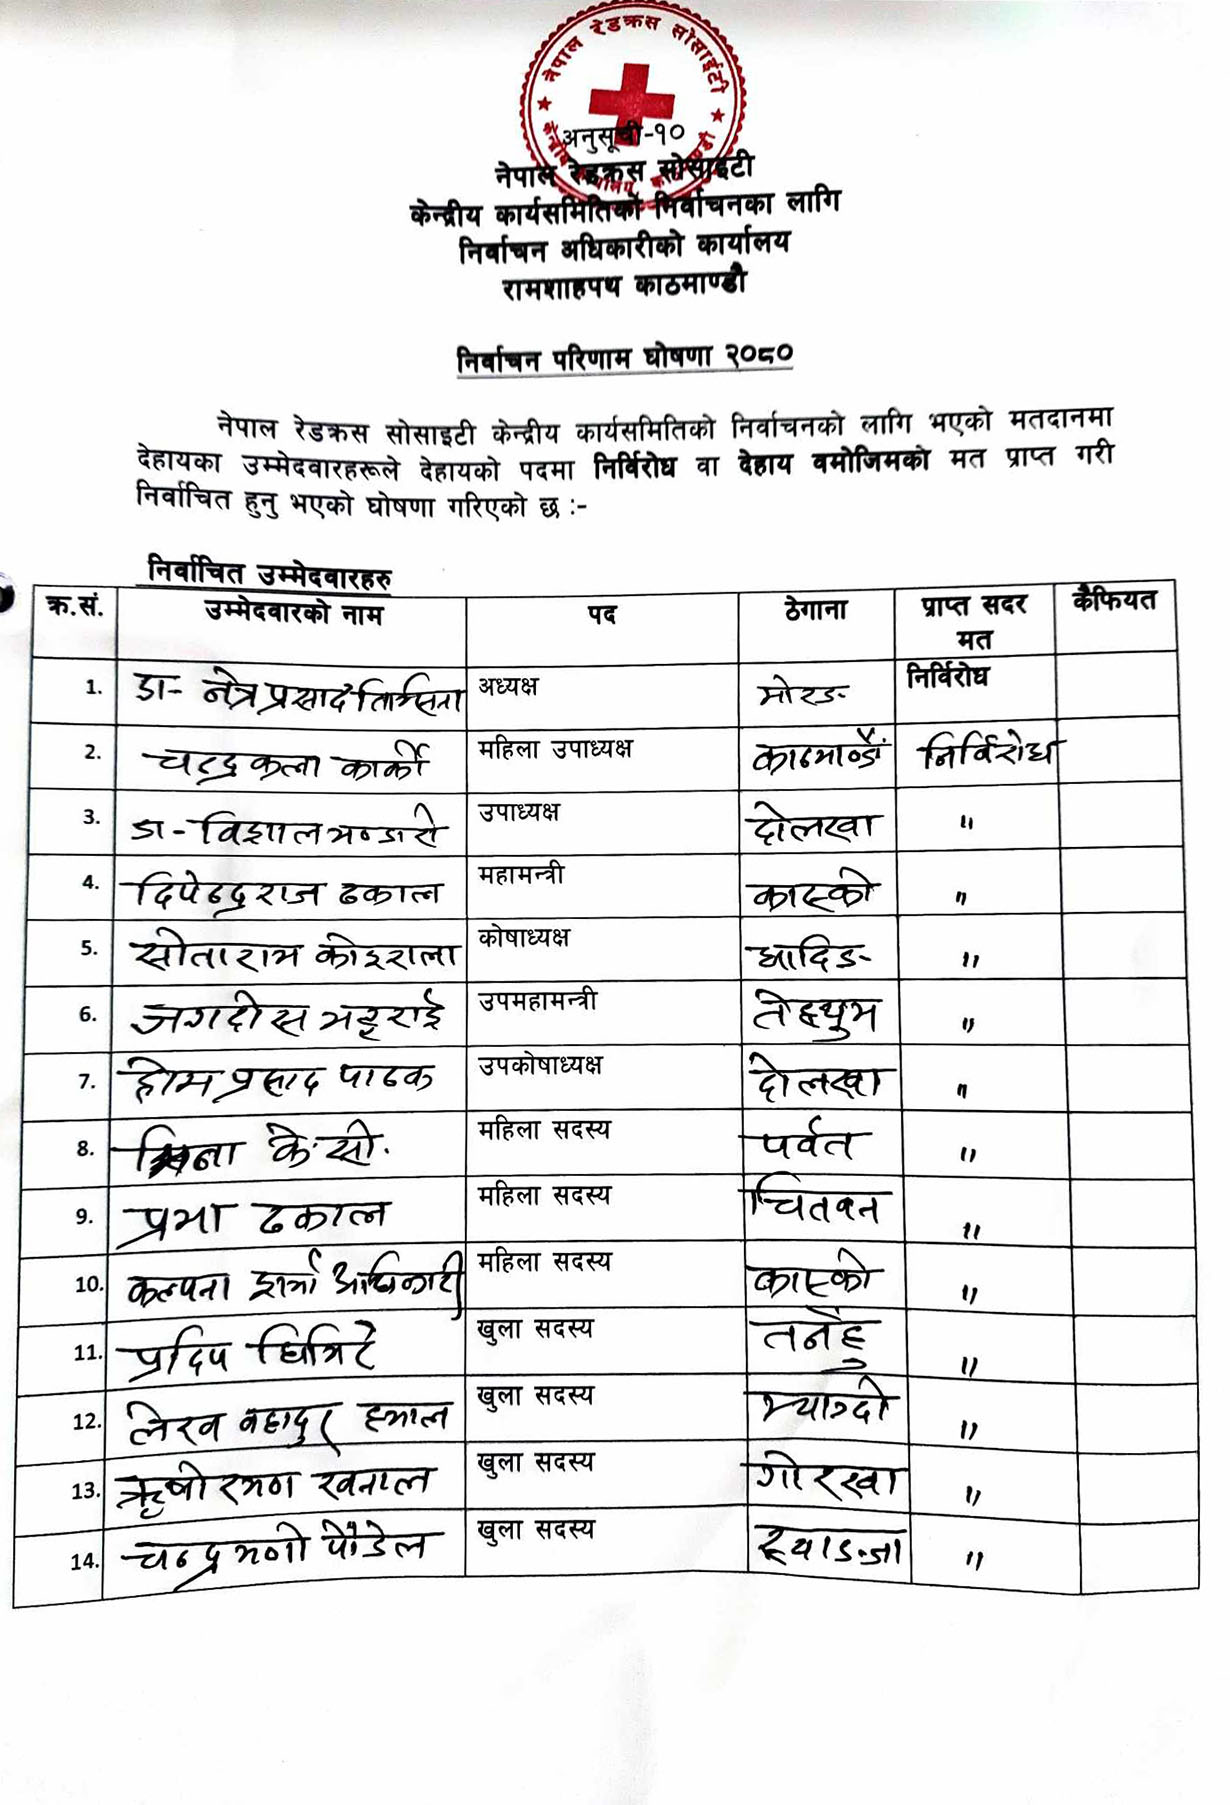 नेपाल रेडक्रस सोसाईटी
अनुसूची-१०
नेपाल रेडक्रस सोसाइटी
केन्द्रीय कार्यसमितिको निर्वाचनका लागि
निर्वाचन अधिकारीको कार्यालय
रामशाहपथ काठमाण्डौ
निर्वाचन परिणाम घोषणा २०८०
नेपाल रेडक्रस सोसाइटी केन्द्रीय कार्यसमितिको निर्वाचनको लागि भएको मतदानमा
देहायका उम्मेदवारहरूले देहायको पदमा निर्विरोध वा देहाय वमोजिमको मत प्राप्त गरी
निर्वाचित हुनु भएको घोषणा गरिएको छ :-
निर्वाचित उम्मेदवारहरु
क्र.सं. उम्मेदवारको नाम पद ठेगाना प्राप्त सदर मत कैफियत
1. डा- नेत्र प्रसाद तिम्सिना अध्यक्ष मोरङ निर्विरोध
2. चन्द्र कला कार्की महिला उपाध्यक्ष काठमाण्डौं निर्विरोध
3. डा- विशाल भण्डारी उपाध्यक्ष दोलखा "
4. दिपेन्द्र राज ढकाल महामन्त्री कास्की "
5. सीताराम कोइराला कोषाध्यक्ष धादिङ "
6. जगदीस भट्टराई उपमहामन्त्री तेह्रथुम "
7. होम प्रसाद पाठक उपकोषाध्यक्ष दोलखा "
8. के.सी. महिला सदस्य पर्वत "
9. प्रभा ढकाल महिला सदस्य चितवन "
10. कल्पना शर्मा अधिकारी महिला सदस्य कास्की "
11. प्रदिप घिमिरे खुला सदस्य तनहुँ "
12. लेख बहादुर हमाल खुला सदस्य म्याग्दी "
13. ऋषी रमण खनाल खुला सदस्य गोरखा "
14. चन्द्र मणी पौडेल खुला सदस्य स्याङजा "